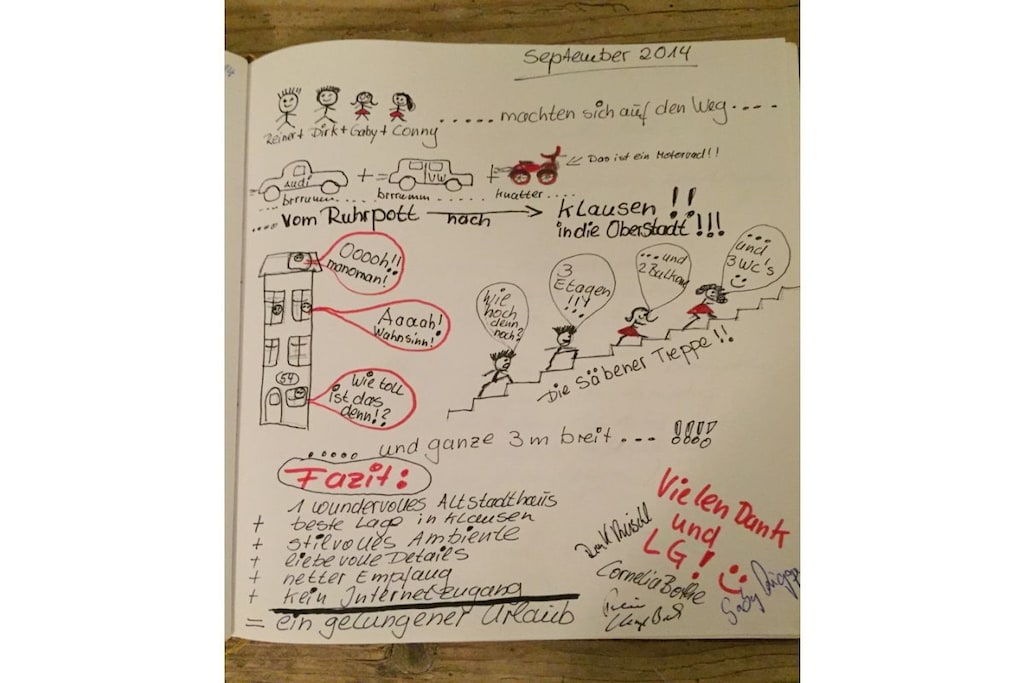 September 2014
Reiner + Dirk + Gaby + Conny
..... machten sich auf den Weg ....
Audi + = VW + ← Das ist ein Motorrad!!
brrrumm.... brrrumm knatter....
.... vom Ruhrpott nach → Klausen !!
in die Oberstadt!!!
Ooooh!!
manoman!
Aaaah!
Wahnsinn!
54
Wie toll
ist das
denn!?
Wie
hoch
denn
noch?
3
Etagen
!!!
...und
2 Balkon
...
und
3 WC's
Die Säbener Treppe!!
..... und ganze 3m breit... !!!!
Fazit:
1 wundervolles Altstadthaus
+ beste Lage in Klausen
+ stilvolles Ambiente
+ liebevolle Details
+ netter Empfang
+ kein Internetzugang
= ein gelungener Urlaub
Vielen Dank
und
LG!
Cornelia Bothe
Gaby